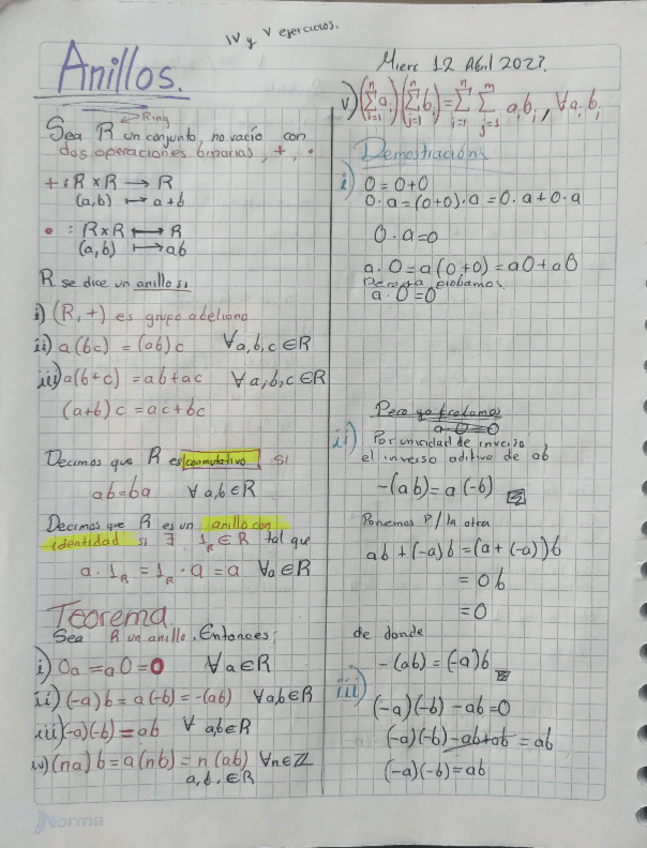 IV y V ejercicios.
Anillos.
Ring
Sea R un conjunto, no vacío con
dos operaciones binarias, +, •
+ : R × R → R
(a,b) ↦ a+b
• : R×R ⟼ R
(a,b) ⟼ ab
R se dice un anillo si
i) (R,+) es grupo abeliano
ii) a(bc) = (ab)c ∀a,b,c ∈R
iii) a(b+c) = ab+ac ∀a,b,c∈R
(a+b)c = ac+bc
Decimos que R es conmutativo si
ab=ba ∀ a,b∈R
Decimos que R es un anillo con
identidad si ∃ 1_R ∈ R tal que
a · 1_R = 1_R · a = a ∀a∈R
Teorema.
Sea R un anillo. Entonces:
i) 0a = a0 = 0 ∀a∈R
ii) (-a)b = a(-b) = -(ab) ∀ab∈R
iii) (-a)(-b) = ab ∀ ab∈R
iv) (na)b = a(nb) = n(ab) ∀n∈ℤ
a,b, ∈R
Norma
Mierc 12 Abril 2023.
v) (∑_{i=1}^{n} a_i)(∑_{j=1}^{m} b_j) = ∑_{i=1}^{n} ∑_{j=1}^{m} a_i b_j , ∀ a_i b_j
Demostración:
i) 0 = 0+0
0·a = (0+0)·a = 0·a+0·a
0·a=0
a·0 = a(0+0) = a0+a0
Pero ya probamos
a·0=0
Pero ya probamos
a·0=0
ii) Por unicidad de inverso
el inverso aditivo de ab
-(ab) = a(-b)
Ponemos P/ la otra
ab + (-a)b = (a+(-a))b
= 0b
= 0
de donde
-(ab) = (-a)b
iii) (-a)(-b) - ab = 0
(-a)(-b) - ab + ab = ab
(-a)(-b) = ab